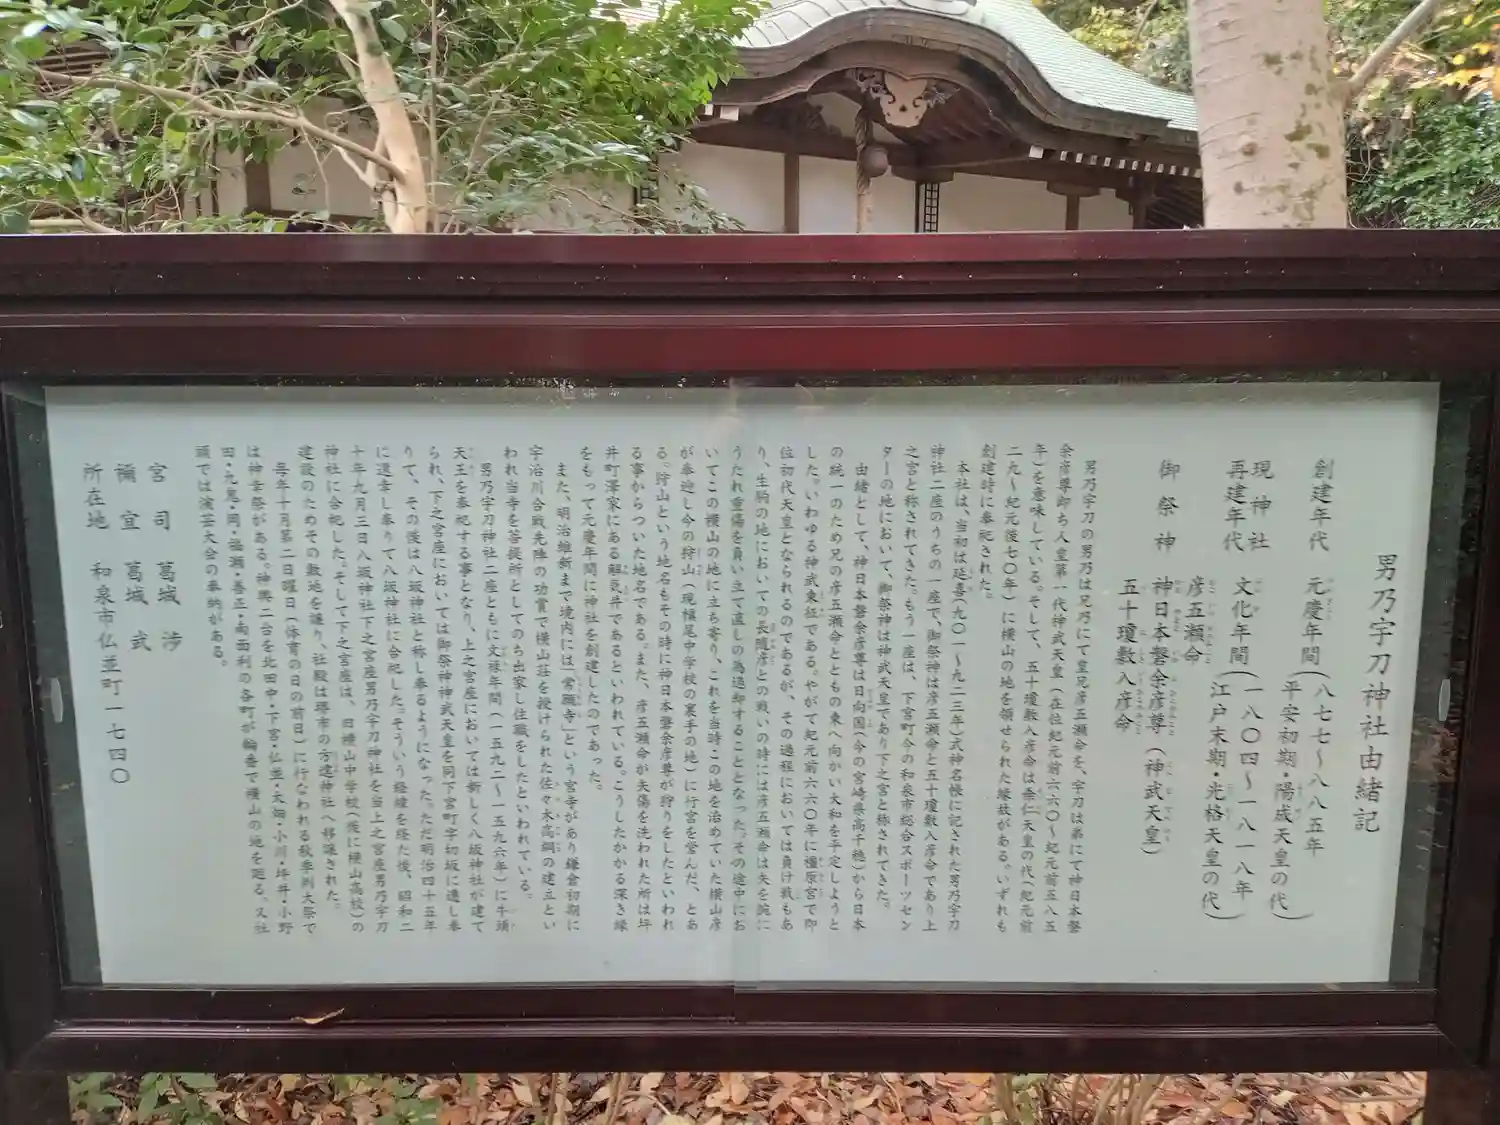 男乃宇刀神社由緒記
創建年代 元慶年間(八七七〜八八五年
平安初期・陽成天皇の代)
現神社
再建年代 文化年間(一八〇四〜一八一八年
江戸末期・光格天皇の代)
御祭神 彦五瀬命
神日本磐余彦尊(神武天皇)
五十瓊敷入彦命
男乃宇刀の男乃は兄乃にて皇兄彦五瀬命を、宇刀は弟にて神日本磐
余彦尊即ち人皇第一代神武天皇(在位紀元前六六〇〜紀元前五八五
年)を意味している。そして、五十瓊敷入彦命は垂仁天皇の代(紀元前
二九〜紀元後七〇年)に横山の地を領せられた縁故がある。いずれも
創建時に奉祀された。
本社は、当初は延喜(九〇一〜九二三年)式神名帳に記された男乃宇刀
神社二座のうちの一座で、御祭神は彦五瀬命と五十瓊敷入彦命であり上
之宮と称されてきた。もう一座は、下宮町今の和泉市総合スポーツセン
ターの地において、御祭神は神武天皇であり下之宮と称されてきた。
由緒として、神日本磐余彦尊は日向国(今の宮崎県高千穂)から日本
の統一のため兄の彦五瀬命とともの東へ向かい大和を平定しようと
した。いわゆる神武東征である。やがて紀元前六六〇年に橿原宮で即
位初代天皇となられるのであるが、その過程においては負け戦もあ
り、生駒の地においての長髄彦との戦いの時には彦五瀬命は矢を腕に
うたれ重傷を負い立て直しの為退却することとなった。その途中にお
いてこの横山の地に立ち寄り、これを当時この地を治めていた横山彦
が奉迎し今の狩山(現槇尾中学校の裏手の地)に行宮を営んだ、とあ
る。狩山という地名もその時に神日本磐余彦尊が狩りをしたといわれ
る事からついた地名である。また、彦五瀬命が矢傷を洗われた所は坪
井町澤家にある解氣井であるといわれている。こうしたかかる深き縁
をもって元慶年間に神社を創建したのであった。
また、明治維新まで境内には「常願寺」という宮寺があり鎌倉初期に
宇治川合戦先陣の功賞で横山荘を授けられた佐々木高綱の建立とい
われ当寺を菩提所としてのち出家し住職をしたといわれている。
男乃宇刀神社二座ともに文禄年間(一五九二〜一五九六年)に牛頭
天王を奉祀する事となり、上之宮座においては新しく八坂神社が建て
られ、下之宮座においては御祭神神武天皇を同下宮町字初坂に遷し奉
りて、その後は八坂神社と称し奉るようになった。ただ明治四十五年
に遷幸し奉りて八坂神社に合祀した。そういう経緯を経た後、昭和二
十年九月三日八坂神社下之宮座男乃宇刀神社を当上之宮座男乃宇刀
神社に合祀した。そして下之宮座は、旧横山中学校(後に横山高校)の
建設のためその敷地を譲り、社殿は堺市の方違神社へ移譲された。
毎年十月第二日曜日(体育の日の前日)に行なわれる秋季例大祭で
は神幸祭がある。神輿二台を北田中・下宮・仏並・大畑・小川・坪井・小野
田・九鬼・岡・福瀬・善正・南面利の各町が輪番で横山の地を廻る。又社
頭では演芸大会の奉納がある。
宮司 葛城 渉
禰宜 葛城 武
所在地 和泉市仏並町一七四〇